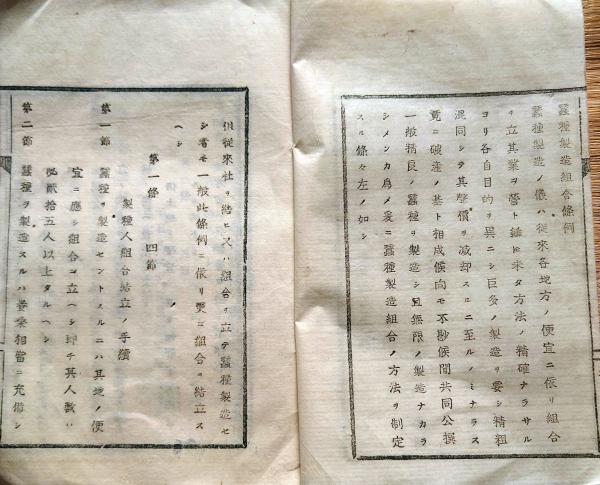 蚕種製造組合条例
蚕種製造ノ儀ハ従来各地方ノ便宜ニ依リ組合
ヲ立其業ヲ営ト雖ヒ未タ方法ノ精確ナラサル
ヨリ各自目的ヲ異ニシ巨多ノ製造ヲ要シ精粗
混同シテ其聲價ヲ减却スルニ至ルノミナラス
竟ニ破産ノ基ト相成候向モ不尠候間共同公撰
一般精良ノ蚕種ヲ製造シ且無限ノ製造ナカラ
シメンカ為メ爰ニ蚕種製造組合ノ方法ヲ制定
スル條々左ノ如シ
但従来社ヲ結ヒ又ハ組合ヲ立テ蚕種製造セ
シ者モ一般此條例ニ依リ更ニ組合ヲ結立ス
ヘシ
第一條 四節
製種人組合結立ノ手續
第一節 蚕種ヲ製造セントスルニハ其地ノ便
宜ニ應シ組合ヲ立ヘシ即チ其人数ハ
必貳拾五人以上タルヘシ
第二節 蚕種ヲ製造スルハ養桒相當ニ充備シ